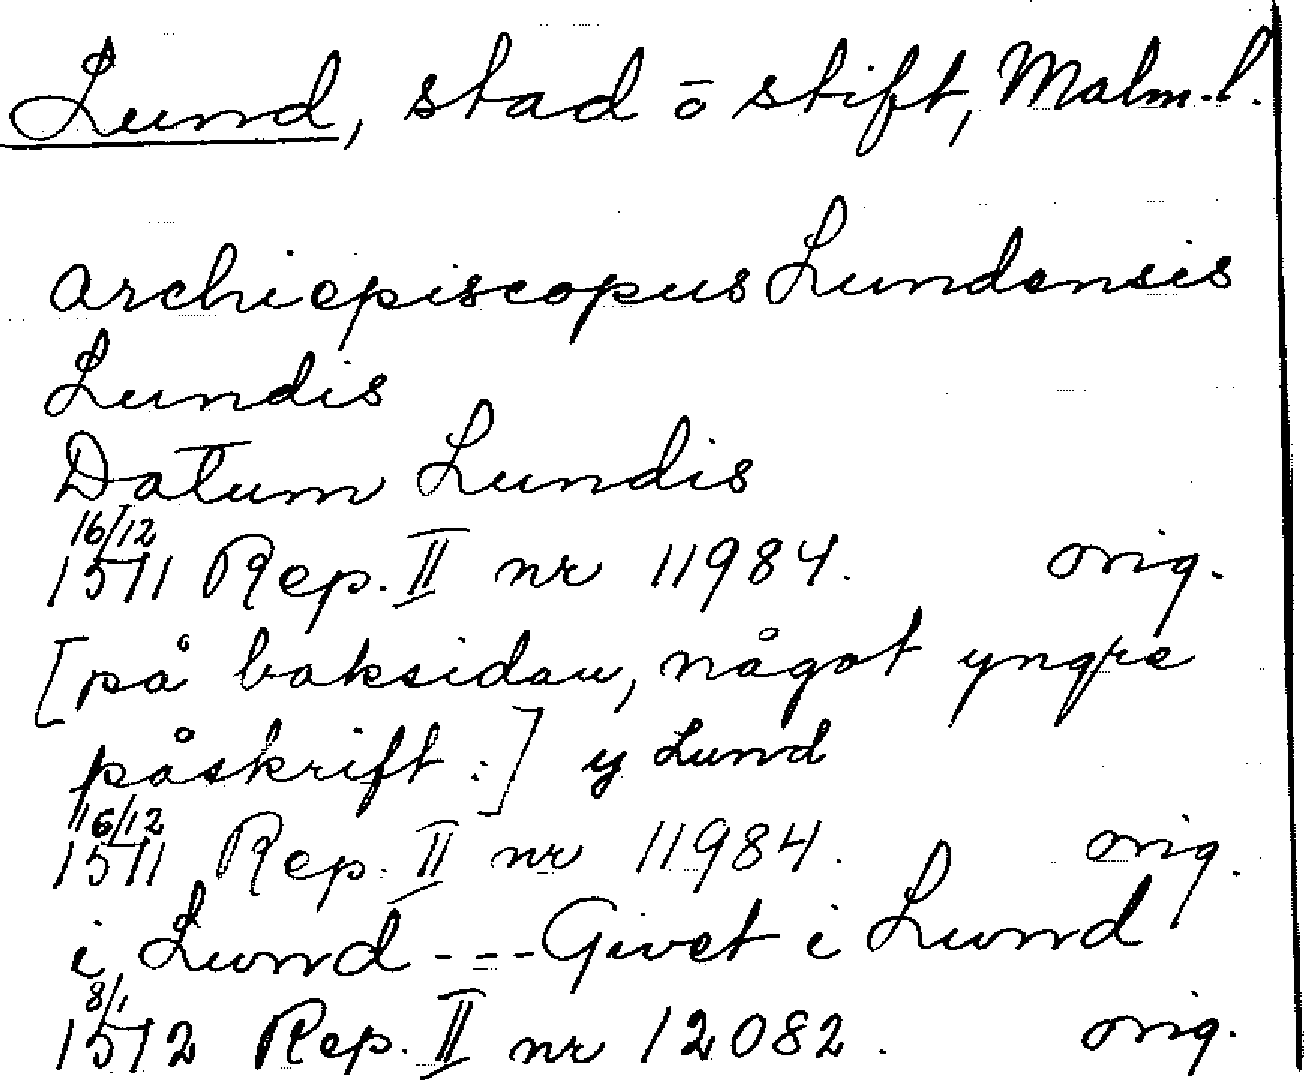 Lund, stad o stift, Malm.l.
archiepiscopus Lundensis
Lundis
Datum Lundis
16/12
1511 Rep. II nr 11984. orig.
[på baksidan, något yngre
påskrift:] y Lund
16/12
1511 Rep. II nr 11984. orig.
i Lund --- Givet i Lund
8/1
1512 Rep. II nr 12082. orig.